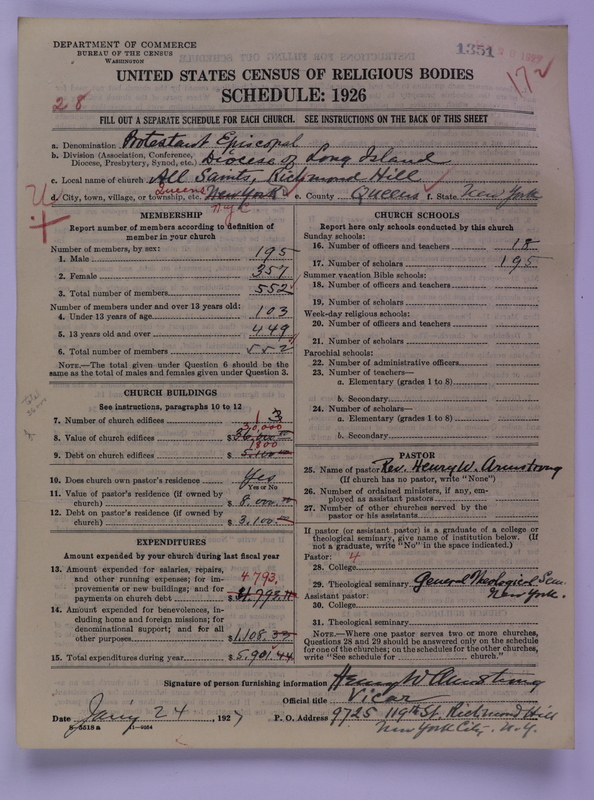 DEPARTMENT OF COMMERCE
BUREAU OF THE CENSUS
WASHINGTON
1351
17
UNITED STATES CENSUS OF RELIGIOUS BODIES
SCHEDULE: 1926
28
FILL OUT A SEPARATE SCHEDULE FOR EACH CHURCH. SEE INSTRUCTIONS ON THE BACK OF THIS SHEET
a. Denomination Protestant Episcopal
b. Division (Association, Conference, Diocese, Presbytery, Synod, etc.) Diocese of Long Island
c. Local name of church All Saints, Richmond Hill
Queens
d. City, town, village, or township, etc. New York e. County Queens f. State New York
MEMBERSHIP
Report number of members according to definition of
member in your church
Number of members, by sex:
1. Male 195
2. Female 357
3. Total number of members 552
Number of members under and over 13 years old:
4. Under 13 years of age 103
5. 13 years old and over 449
6. Total number of members 552
NOTE.—The total given under Question 6 should be the
same as the total of males and females given under Question 3.
CHURCH BUILDINGS
See instructions, paragraphs 10 to 12
7. Number of church edifices 1 3
30,000
8. Value of church edifices $36,000.00
1800
9. Debt on church edifices $5,100.00
10. Does church own pastor's residence? Yes
Yes or No
11. Value of pastor's residence (if owned by
church) $8,000.00
12. Debt on pastor's residence (if owned by
church) $3,100.00
EXPENDITURES
Amount expended by your church during last fiscal year
13. Amount expended for salaries, repairs,
and other running expenses; for im-
provements or new buildings; and for
payments on church debt $4,793.11
4793.
14. Amount expended for benevolences, in-
cluding home and foreign missions; for
denominational support; and for all
other purposes $1,108.33
15. Total expenditures during year $5,901.44
CHURCH SCHOOLS
Report here only schools conducted by this church
Sunday schools:
16. Number of officers and teachers 18
17. Number of scholars 195
Summer vacation Bible schools:
18. Number of officers and teachers
19. Number of scholars
Week-day religious schools:
20. Number of officers and teachers
21. Number of scholars
Parochial schools:
22. Number of administrative officers
23. Number of teachers—
a. Elementary (grades 1 to 8)
b. Secondary
24. Number of scholars—
a. Elementary (grades 1 to 8)
b. Secondary
PASTOR
25. Name of pastor Rev. Henry W. Armstrong
(If church has no pastor, write "None")
26. Number of ordained ministers, if any, em-
ployed as assistant pastors
27. Number of other churches served by the
pastor or his assistants
If pastor (or assistant pastor) is a graduate of a college or
theological seminary, give name of institution below. (If
not a graduate, write "No" in the space indicated.)
Pastor: 4
28. College
29. Theological seminary General Theological Sem.
Assistant pastor: New York.
30. College
31. Theological seminary
NOTE.—Where one pastor serves two or more churches,
Questions 28 and 29 should be answered only on the schedule
for one of the churches; on the schedules for the other churches,
write "See schedule for church."
Signature of person furnishing information Henry W Armstrong
Official title Vicar
Date Jan'y 24, 1927 P. O. Address 9725 119th St. Richmond Hill
New York City. N.Y.
8-5518a 11-9354